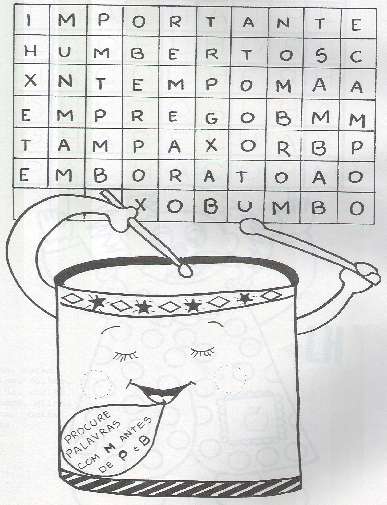 I M P O R T A N T E
H U M B E R T O S C
X N T E M P O M A A
E M P R E G O B M M
T A M P A X O R B P
E M B O R A T O A O
X O B U M B O
PROCURE
PALAVRAS
COM M ANTES
DE P E B